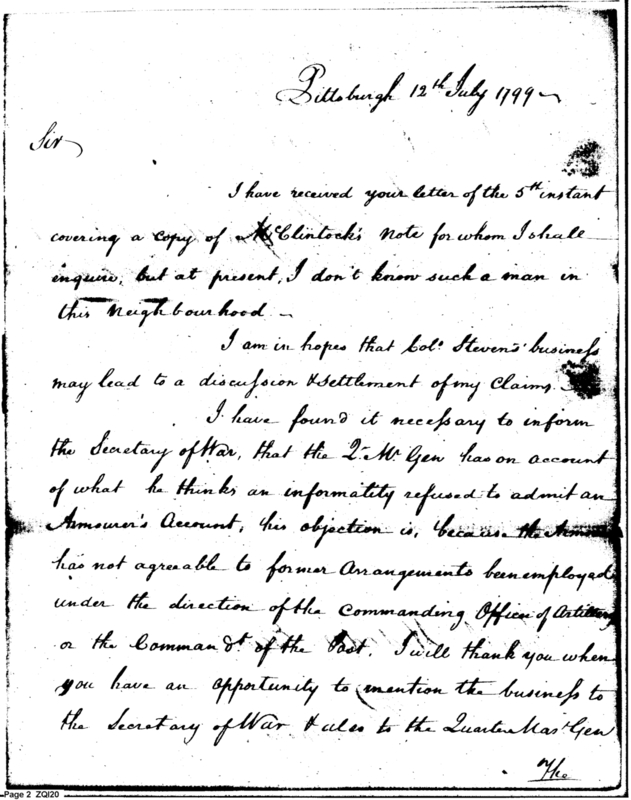 Pittsburgh 12th July 1799
Sir
I have received your letter of the 5th instant
covering a copy of McClintock's Note for whom I shall
enquire, but at present, I don't know such a man in
this Neighbourhood.
I am in hopes that Colo. Stevens' business
may lead to a discussion & settlement of my Claims.
I have found it necessary to inform
the Secretary of War, that the Qr. Mr. Gen has on account
of what he thinks an informality refused to admit an
Armourer's Account, his objection is, because the
has not agreeable to former Arrangements been employed
under the direction of the Commanding Officer of Artillery
or the Commandt. of the Post. I will thank you when
you have an opportunity to mention the business to
the Secretary of War & also to the Quarter Mast Gen
The
Page 2 ZQI20